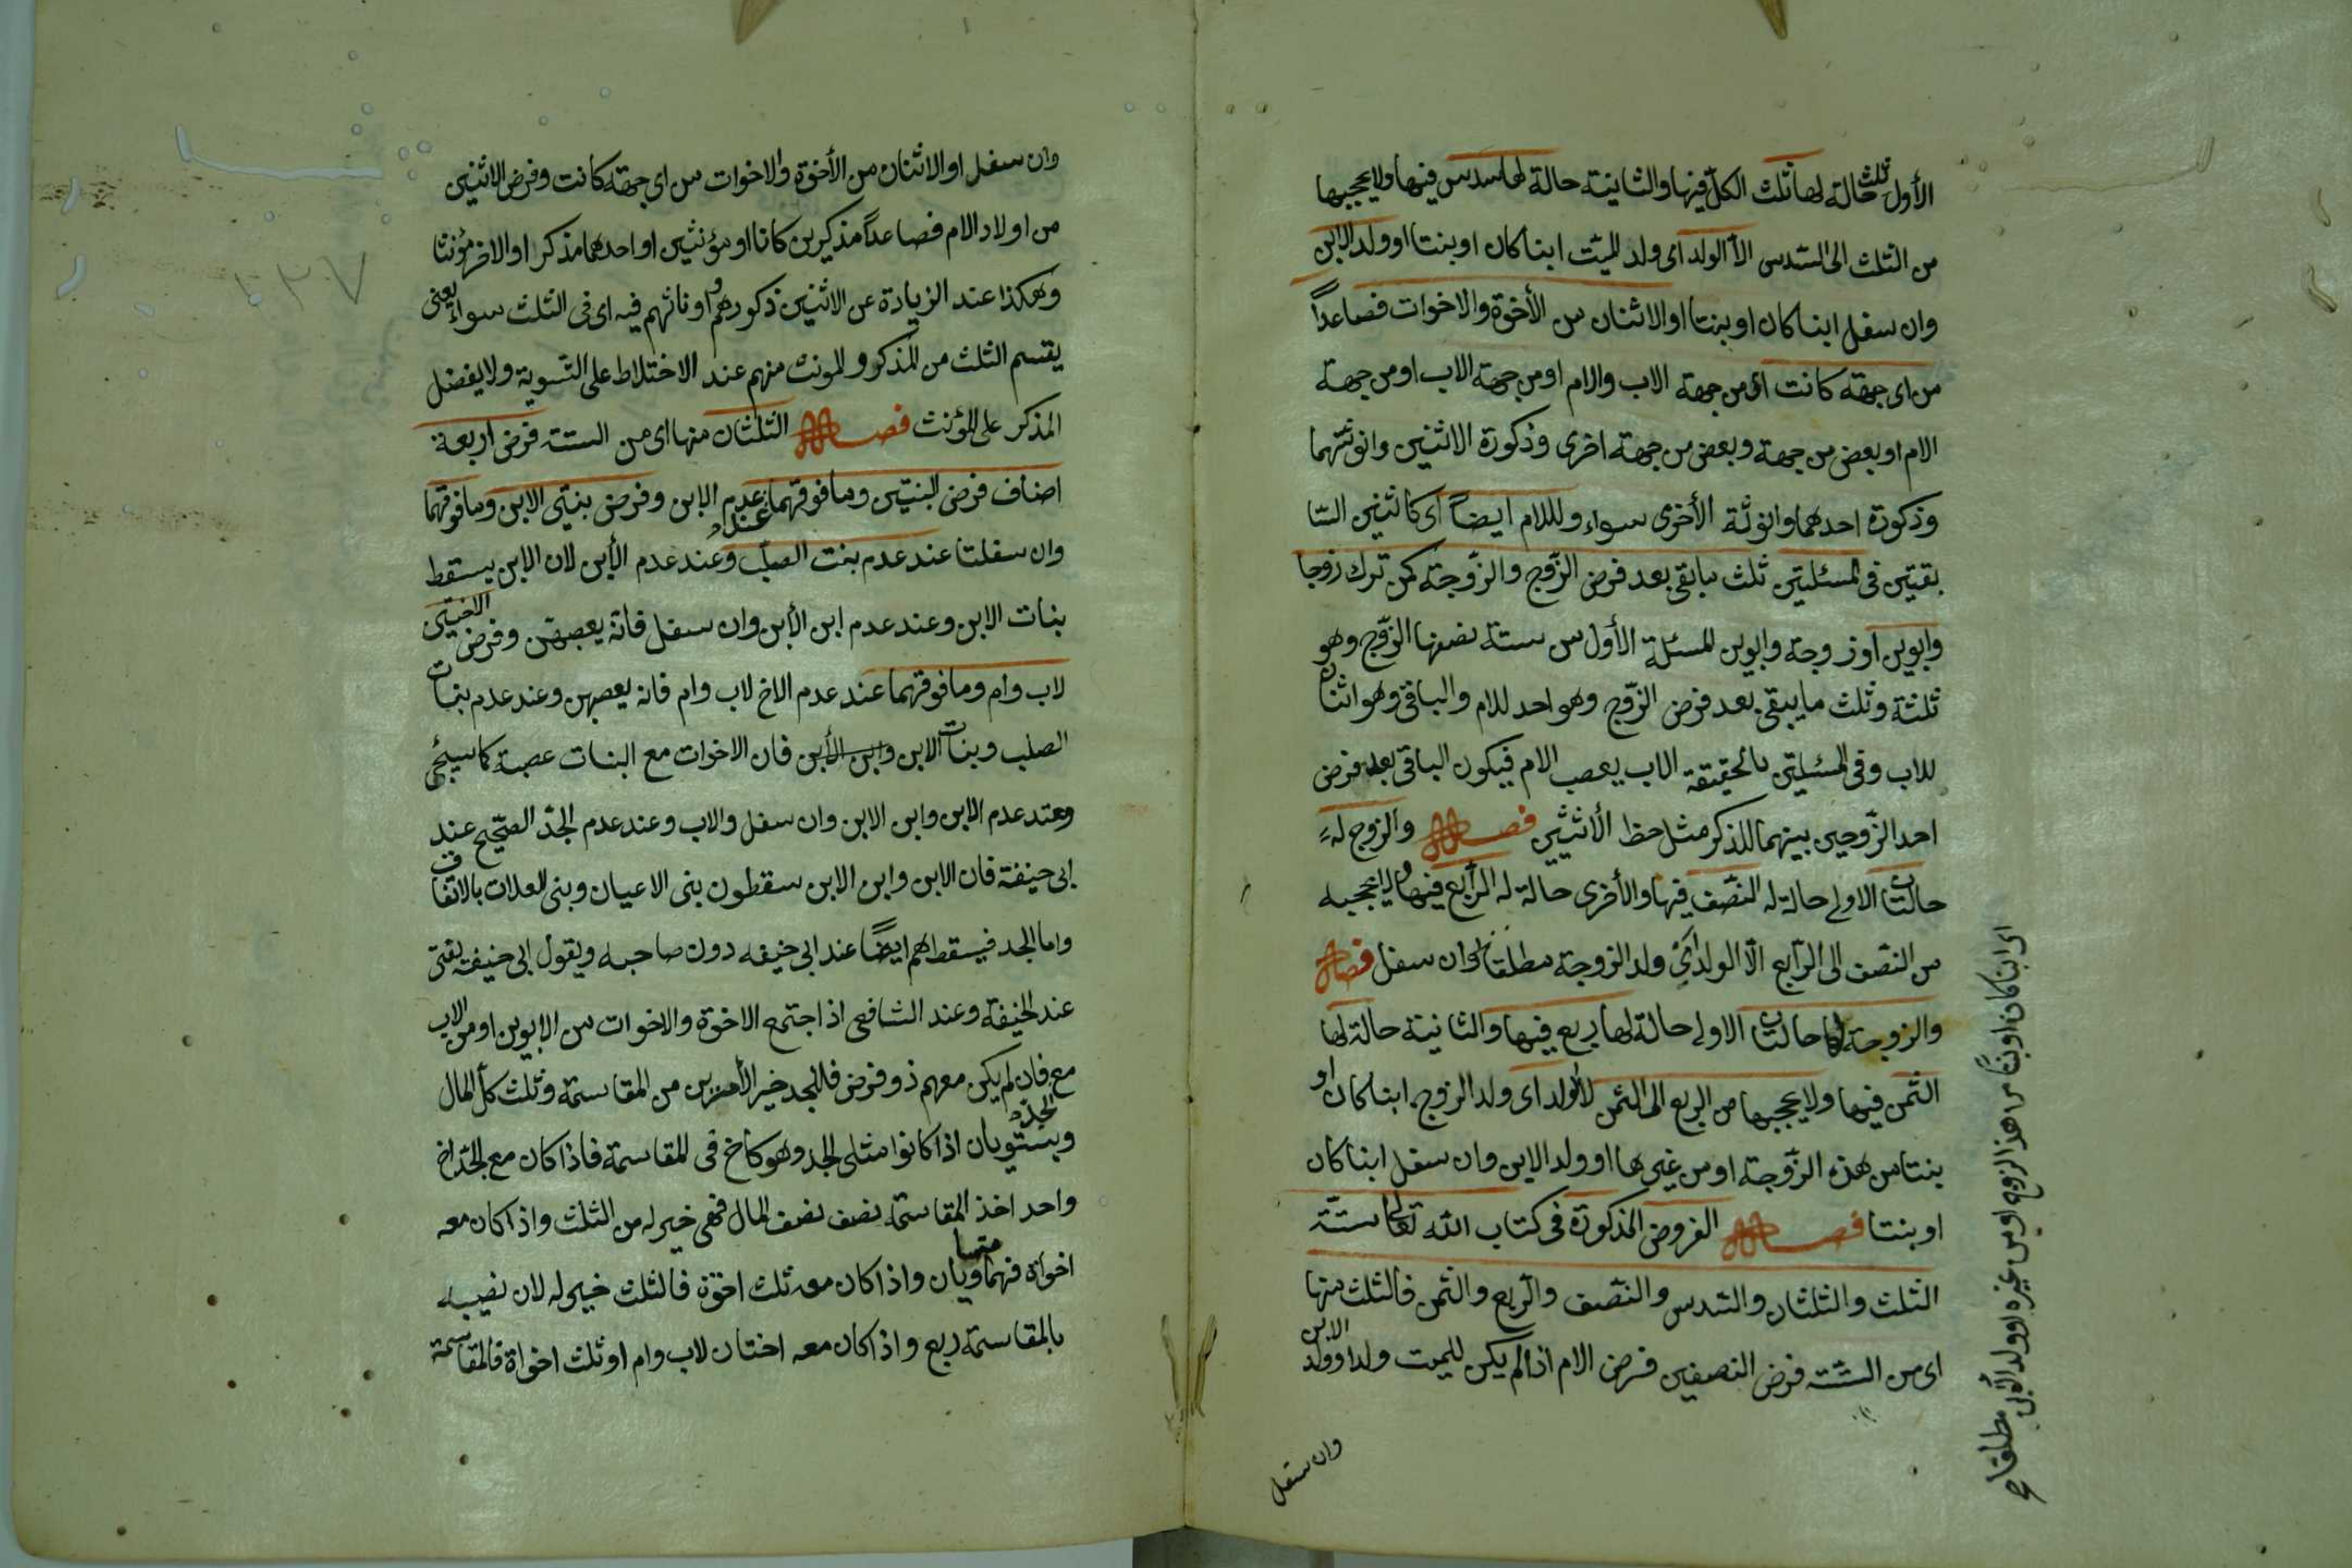 الأول ثلث حالة لها ثلث الكل فيها والثانية حالة لها سدس فيها ولا يحجبها
من الثلث الى السّدس الا الولد اى ولد للميّت ابنا كان او بنتا او ولد الابن
وان سفل ابنا كان او بنتا او الاثنان من الأخوة والاخوات فصاعداً
من اى جهة كانت اى من جهة الاب والام او من جهة الاب او من جهة
الام او بعض من جهة وبعض من جهة اخرى وذكورة الاثنين وانوثتهما
وذكورة احدهما وانوثة الأخرى سواء وللام ايضاً اى كاثنين السّا
بقيتين فى المسئلتين ثلث ما بقى بعد فرض الزّوج والزّوجة كمن ترك زوجا
وابوين او زوجة وابوين للمسئلة الأول من ستة نصفها الزّوج وهو
ثلثة وثلث ما يبقى بعد فرض الزّوج وهو احد للام والباقى وهو اثنان
للاب وفى المسئلتين بالحقيقة الاب يعصب الام فيكون الباقى بعد فرض
احد الزّوجين بينهما للذكر مثل حظ الأنثيين فصل والزوج له
حالتان الاولى حالة له النّصف فيها والأخرى حالة له الرّبع فيها ولا يحجبه
من النّصف الى الرّبع الّا الولد اى ولد الزوجة مطلقا وان سفل فصل
والزوجة لها حالتان الاولى حالة لها ربع فيها والثانية حالة لها
الثّمن فيها ولا يحجبها من الربع الى الثمن الا لولد اى ولد الزوج ابنا كان او
بنتا من هذه الزّوجة او من غيرها او ولد الابن وان سفل ابنا كان
او بنتا فصل الفروض المذكورة فى كتاب الله تعالى ستّة
الثلث والثلثان والسّدس والنّصف والرّبع والثمن فالثلث منها
اى من السّتة فرض النصفين فرض الام اذا لم يكن للميت ولد او ولد الابن
وان سفل
اى ابنا كان او بنتاً من هذا الزوج او من غيره او ولد الأبن مطلقا
وان سفل او الاثنان من الأخوة والاخوات من اى جهة كانت وفرض الاثنين
من اولاد الام فصاعداً مذكرين كانا او مؤنثين او احدهما مذكرا او الاخر مؤنثا
وهكذا عند الزيادة عن الاثنين ذكورهم واناثهم فيه اى فى الثلث سواء يعنى
يقسم الثلث من المذكر والمونث منهم عند الاختلاط على التّسوية ولا يفضل
المذكر على المؤنث فصل الثلثان منها اى من الستة فرض اربعة
اصناف فرض البنتين وما فوقهما عند عدم الابن وفرض بنتى الابن وما فوقهما
وان سفلتا عند عدم بنت الصلب وعند عدم الأبن لان الابن يسقط
بنات الابن وعند عدم ابن الأبن وان سفل فانّه يعصبهن وفرض الاختين
لاب وام وما فوقهما عند عدم الاخ لاب وام فانه يعصبهن وعند عدم بنات
الصلب وبنات الابن وابن الأبن فان الاخوات مع البنات عصبة كما سيجئ
وعند عدم الابن وابن الابن وان سفل والاب وعند عدم الجدّ الصّحيح عند
ابى حنيفة فان الابن وابن الابن سقطون بنى الاعيان وبنى العلات بالاتفاق
واما الجد فيسقط هم ايضاً عند ابى حنيفه دون صاحبه وبقول ابى حنيفة يفتى
عند الحنيفة وعند الشافعى اذا اجتمع الاخوة والاخوات من الابوين او من الاب
مع الجدّ فان لم يكن معهم ذو فرض فللجد خير الأمرين من المقاسمة وثلث كلّ المال
ويستويان اذا كانوا مثلى الجد وهو كاخ فى المقاسمة فاذا كان مع الجدّ اخ
واحد اخذ المقاسمة نصف نصف المال فهى خير له من الثلث واذا كان معه
اخواه فهما متساويان واذا كان معه ثلث اخوة فالثلث خير له لان نصيبه
بالمقاسمة ربع واذا كان معه اختان لاب وام او ثلث اخواة فالمقاسمة